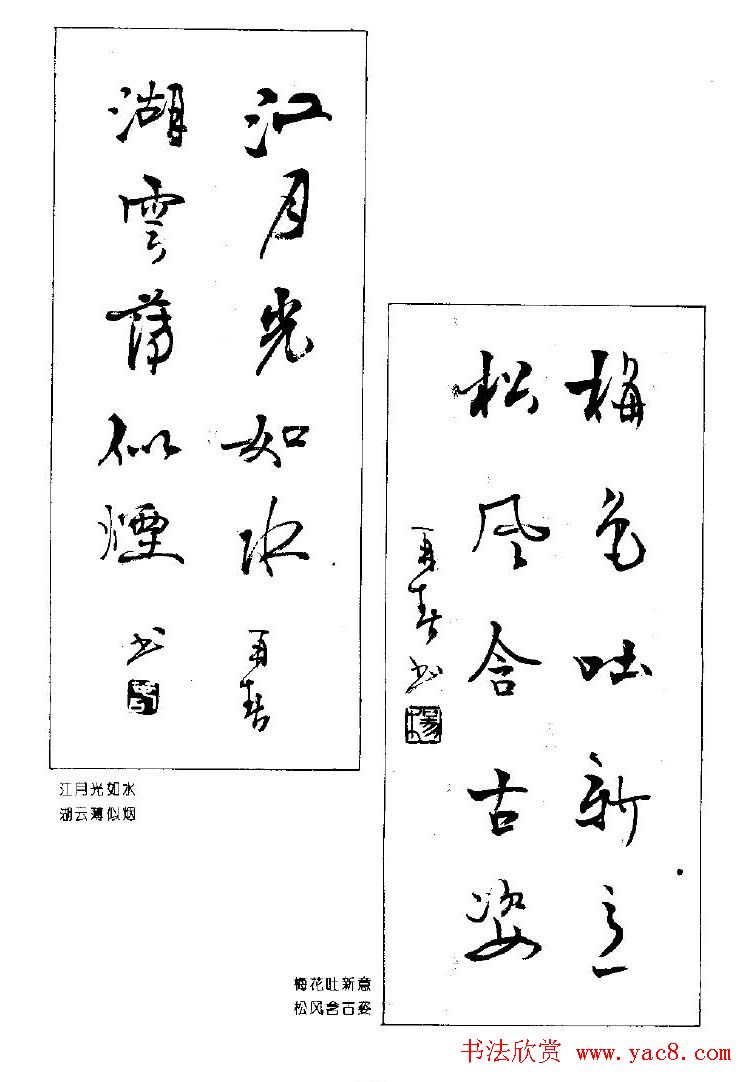 江月光如水 再春
湖雲薄似煙 书
江月光如水
湖云薄似烟
梅花吐新意
松风含古姿
再春书
楊
梅花吐新意
松风含古姿
书法欣赏 www.yac8.com